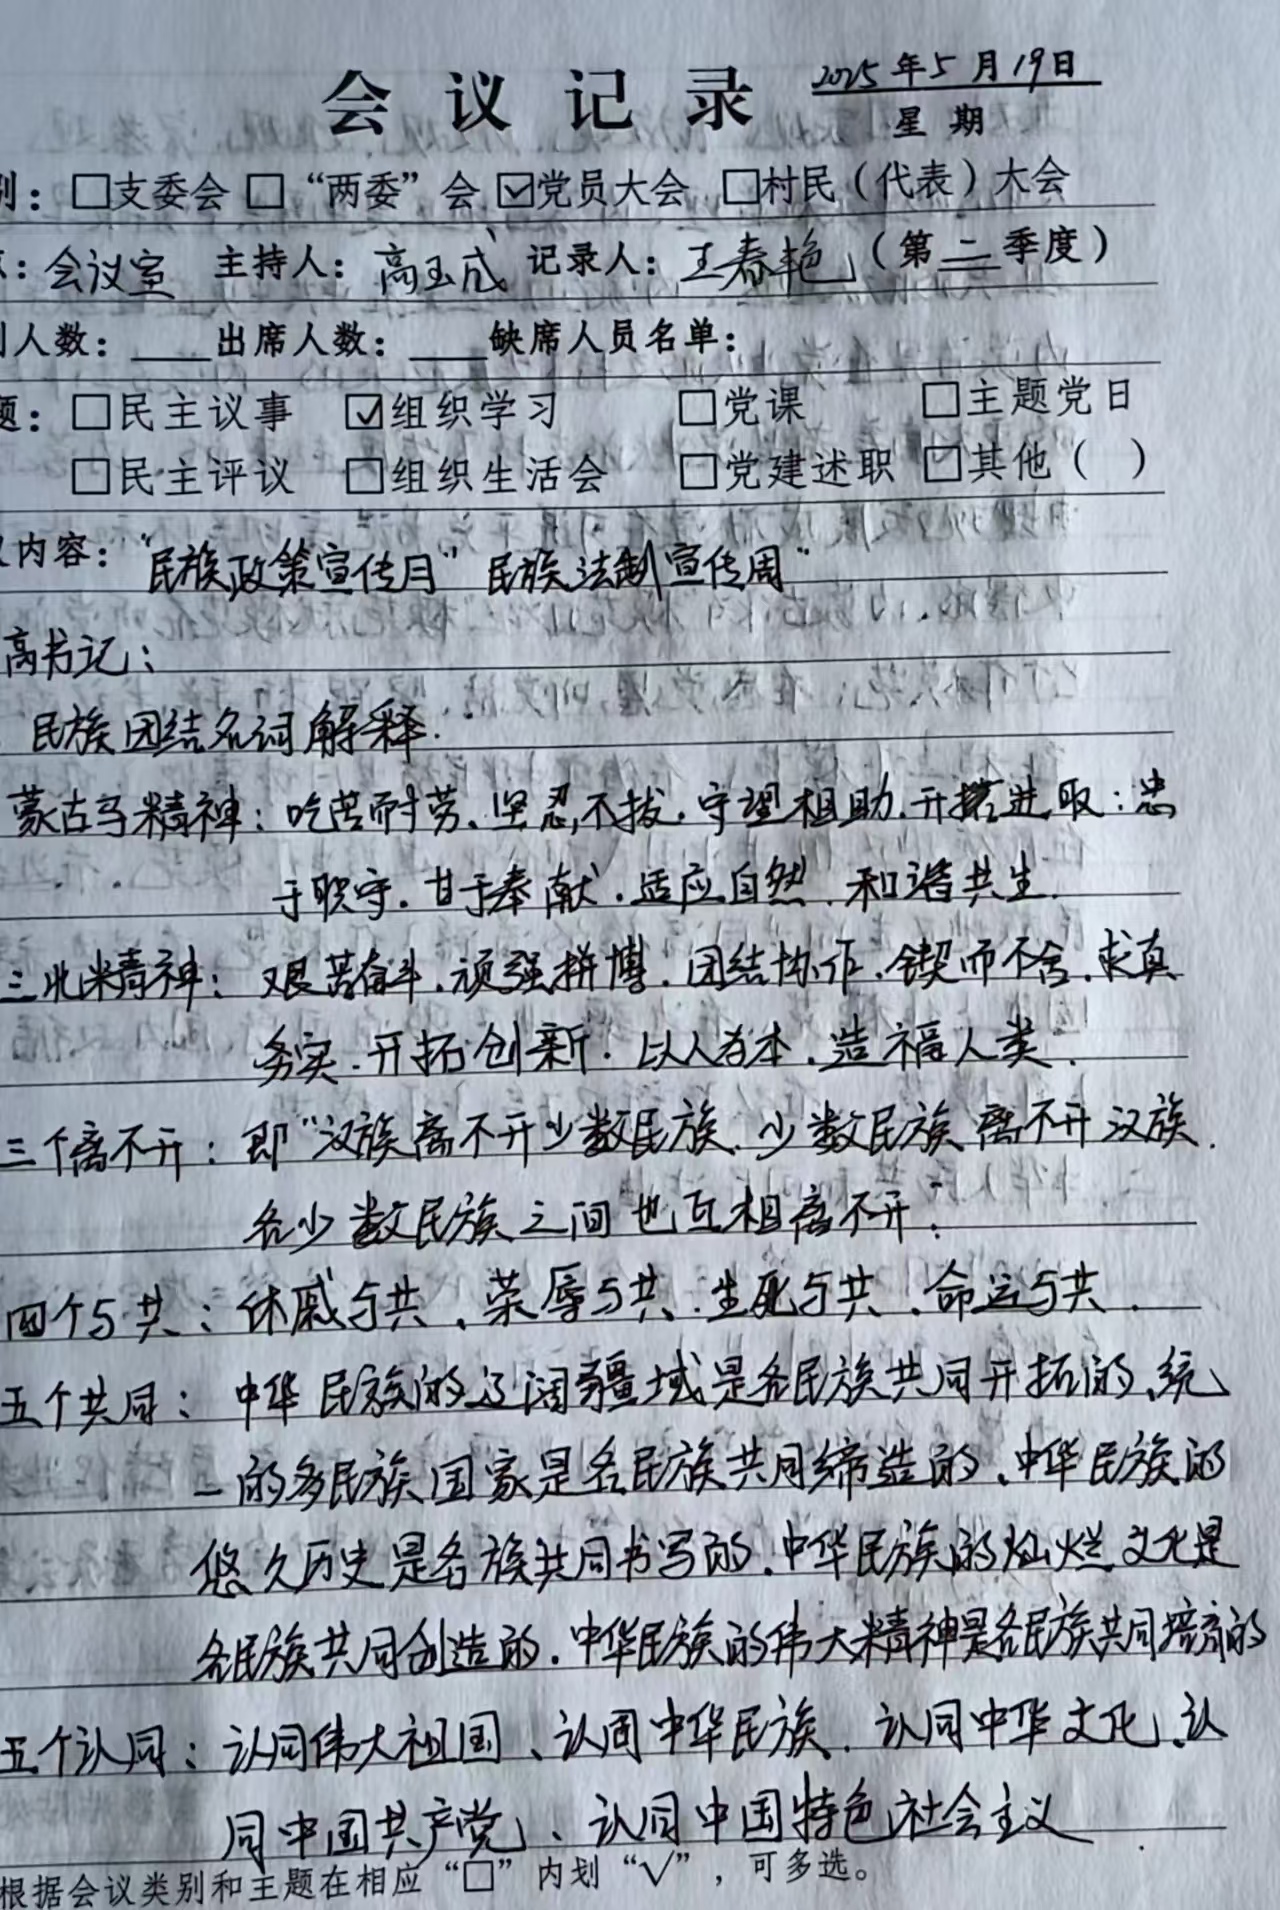 会议记录 2025年5月19日
星期
别：□支委会 □“两委”会 ☑党员大会 □村民（代表）大会
点：会议室 主持人：高玉成 记录人：王春艳（第二季度）
到人数：____出席人数：____缺席人员名单：
题：□民主议事 ☑组织学习 □党课 □主题党日
□民主评议 □组织生活会 □党建述职 ☑其他（ ）
议内容：“民族政策宣传月”民族法制宣传周”
高书记：
民族团结名词解释.
蒙古马精神：吃苦耐劳、坚忍不拔.守望相助.开拓进取：忠
于职守.甘于奉献.适应自然.和谐共生.
三北精神：艰苦奋斗.顽强拼博.团结协作.锲而不舍.求真
务实.开拓创新.以人为本.造福人类.
三个离不开：即“汉族离不开少数民族.少数民族离不开汉族.
各少数民族之间也互相离不开：
四个与共：休戚与共、荣辱与共.生死与共、命运与共.
五个共同：中华民族的辽阔疆域是各民族共同开拓的、统
一的多民族国家是各民族共同缔造的、中华民族的
悠久历史是各族共同书写的.中华民族的灿烂文化是
各民族共同创造的.中华民族的伟大精神是各民族共同培育的
五个认同：认同伟大祖国、认同中华民族.认同中华文化、认
同中国共产党、认同中国特色社会主义.
根据会议类别和主题在相应“□”内划“√”，可多选。